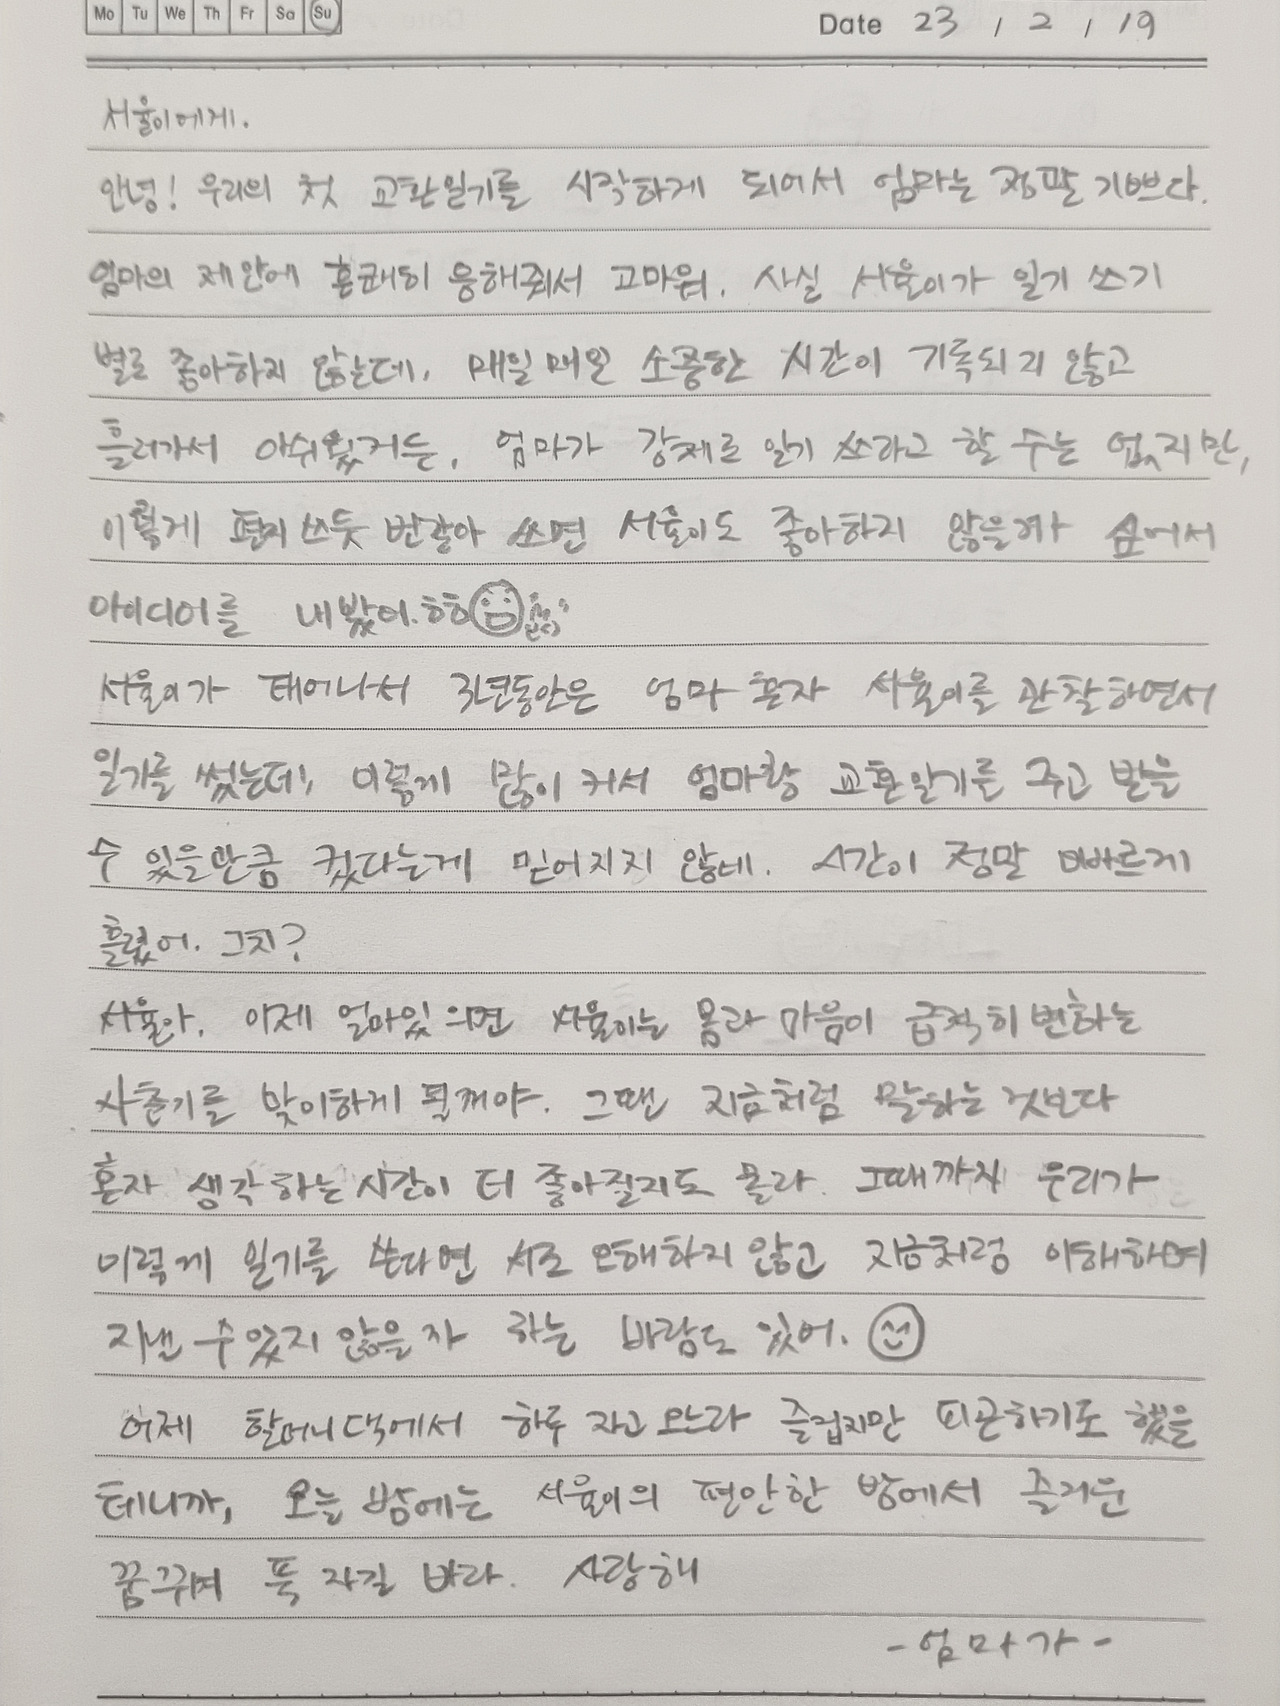 Mo Tu We Th Fr Sa Su
Date 23 / 2 / 19
서율이에게.
안녕! 우리의 첫 교환일기를 시작하게 되어서 엄마는 정말 기쁘다.
엄마의 제안에 흔쾌히 응해줘서 고마워. 사실 서율이가 일기 쓰기
별로 좋아하지 않는데, 매일매일 소중한 시간이 기록되지 않고
흘러가서 아쉬웠거든, 엄마가 강제로 일기 쓰라고 할 수는 없지만,
이렇게 편지 쓰듯 번갈아 쓰면 서율이도 좋아하지 않을까 싶어서
아이디어를 내봤어. ㅎㅎ
서율이가 태어나서 3년동안은 엄마 혼자 서율이를 관찰하면서
일기를 썼는데, 이렇게 많이 커서 엄마랑 교환일기를 주고 받을
수 있을만큼 컸다는게 믿어지지 않네. 시간이 정말 빠르게
흘렀어. 그치?
서율아, 이제 얼마있으면 서율이는 몸과 마음이 급격히 변하는
사춘기를 맞이하게 될꺼야. 그땐 지금처럼 말하는 것보다
혼자 생각하는 시간이 더 좋아질지도 몰라. 그때까지 우리가
이렇게 일기를 쓴다면 서로 오해하지 않고 지금처럼 이해하며
지낼 수 있지 않을까 하는 바람도 있어.
어제 할머니댁에서 하루 자고 오느라 즐겁지만 피곤하기도 했을
테니까, 오늘 밤에는 서율이의 편안한 방에서 즐거운
꿈꾸며 푹 자길 바라. 사랑해
- 엄마가 -